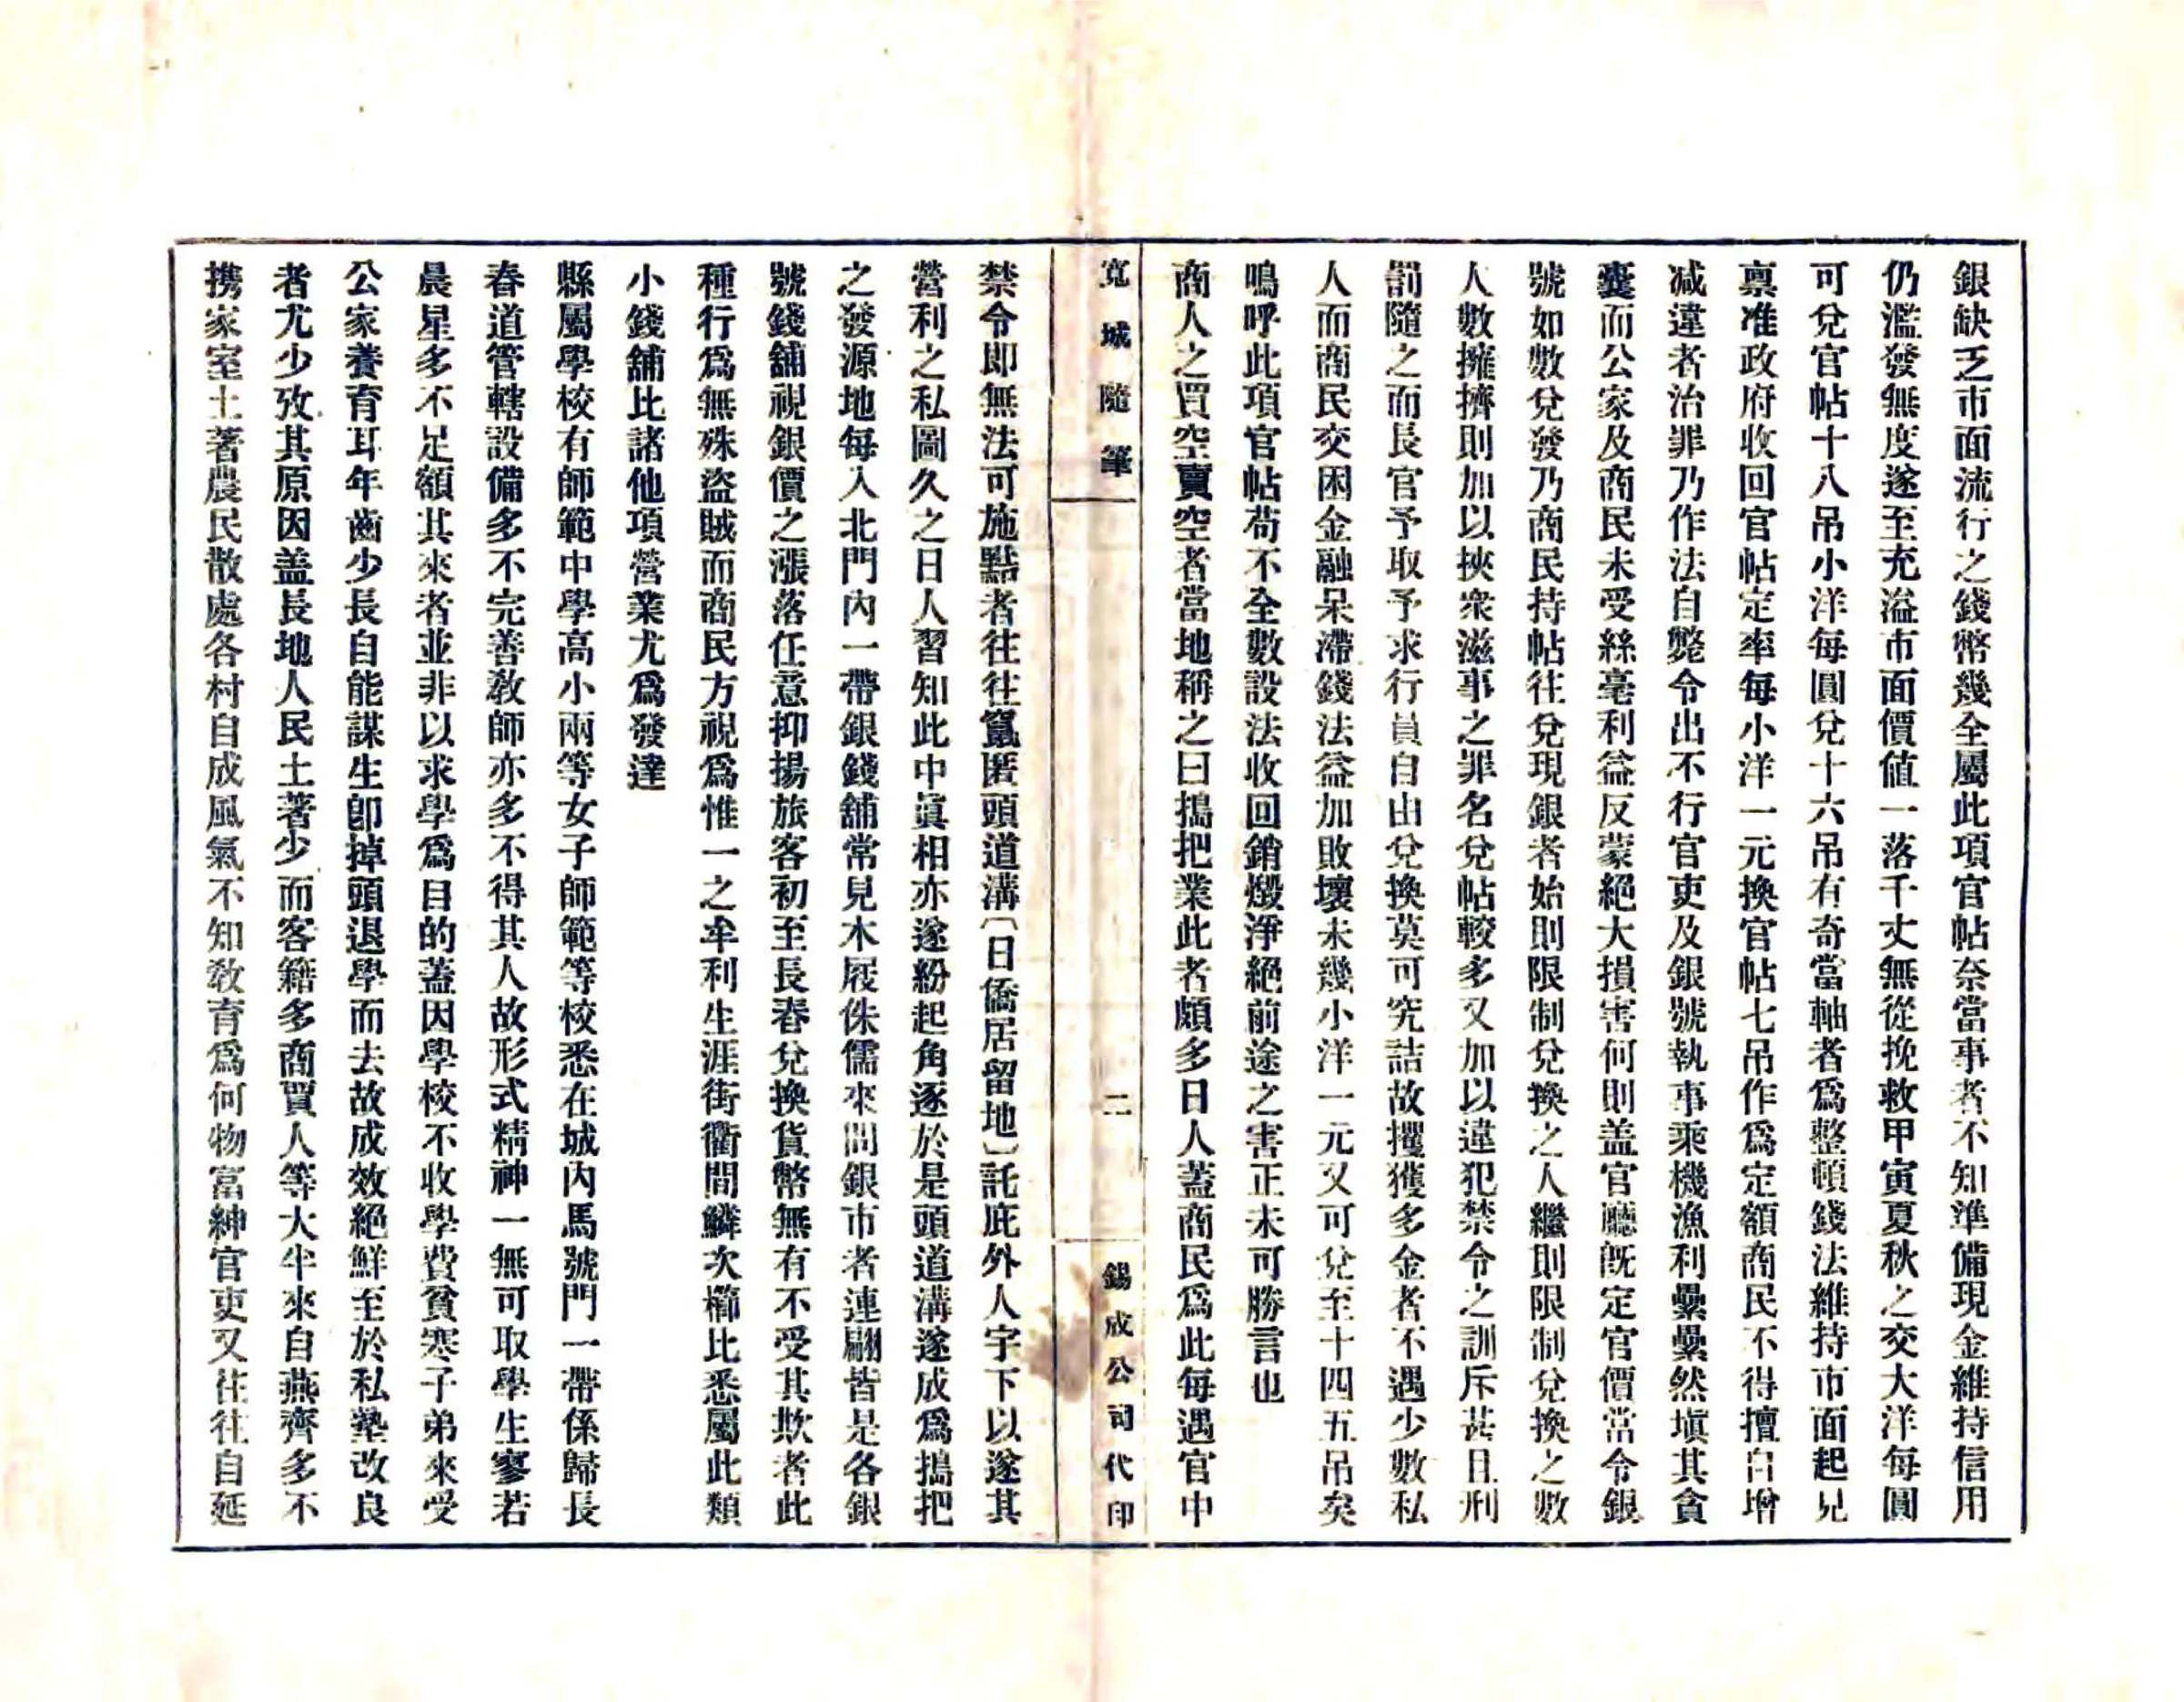 銀缺乏市面流行之錢幣幾全屬此項官帖奈當事者不知準備現金維持信用
仍濫發無度遂至充溢市面價値一落千丈無從挽救甲寅夏秋之交大洋每圓
可兌官帖十八吊小洋每圓兌十六吊有奇當軸者爲整頓錢法維持市面起見
禀准政府收回官帖定率每小洋一元換官帖七吊作爲定額商民不得擅自增
减違者治罪乃作法自斃令出不行官吏及銀號執事乘機漁利纍纍然塡其貪
囊而公家及商民未受絲毫利益反蒙絕大損害何則盖官廳旣定官價當令銀
號如數兌發乃商民持帖往兌現銀者始則限制兌換之人繼則限制兌換之數
人數擁擠則加以挾衆滋事之罪名兌帖較多又加以違犯禁令之訓斥甚且刑
罰隨之而長官予取予求行員自由兌換莫可究詰故攫獲多金者不過少數私
人而商民交困金融呆滯錢法益加敗壞未幾小洋一元又可兌至十四五吊矣
嗚呼此項官帖苟不全數設法收回銷燬淨絕前途之害正未可勝言也
商人之買空賣空者當地稱之曰搗把業此者頗多日人蓋商民爲此每遇官中
寬城隨筆
二
錫成公司代印
禁令即無法可施黠者往往竄匿頭道溝〔日僑居留地〕託庇外人宇下以遂其
營利之私圖久之日人習知此中眞相亦遂紛起角逐於是頭道溝遂成爲搗把
之發源地每入北門內一帶銀錢舖常見木屐侏儒來問銀市者連翩皆是各銀
號錢舖視銀價之漲落任意抑揚旅客初至長春兌換貨幣無有不受其欺者此
種行爲無殊盜賊而商民方視爲惟一之牟利生涯街衢間鱗次櫛比悉屬此類
小錢舖比諸他項營業尤爲發達
縣屬學校有師範中學高小兩等女子師範等校悉在城內馬號門一帶係歸長
春道管轄設備多不完善敎師亦多不得其人故形式精神一無可取學生寥若
晨星多不足額其來者並非以求學爲目的蓋因學校不收學費貧寒子弟來受
公家養育耳年齒少長自能謀生卽掉頭退學而去故成效絕鮮至於私塾改良
者尤少攷其原因盖長地人民土著少而客籍多商買人等大半來自燕齊多不
携家室土著農民散處各村自成風氣不知敎育爲何物富紳官吏又往往自延